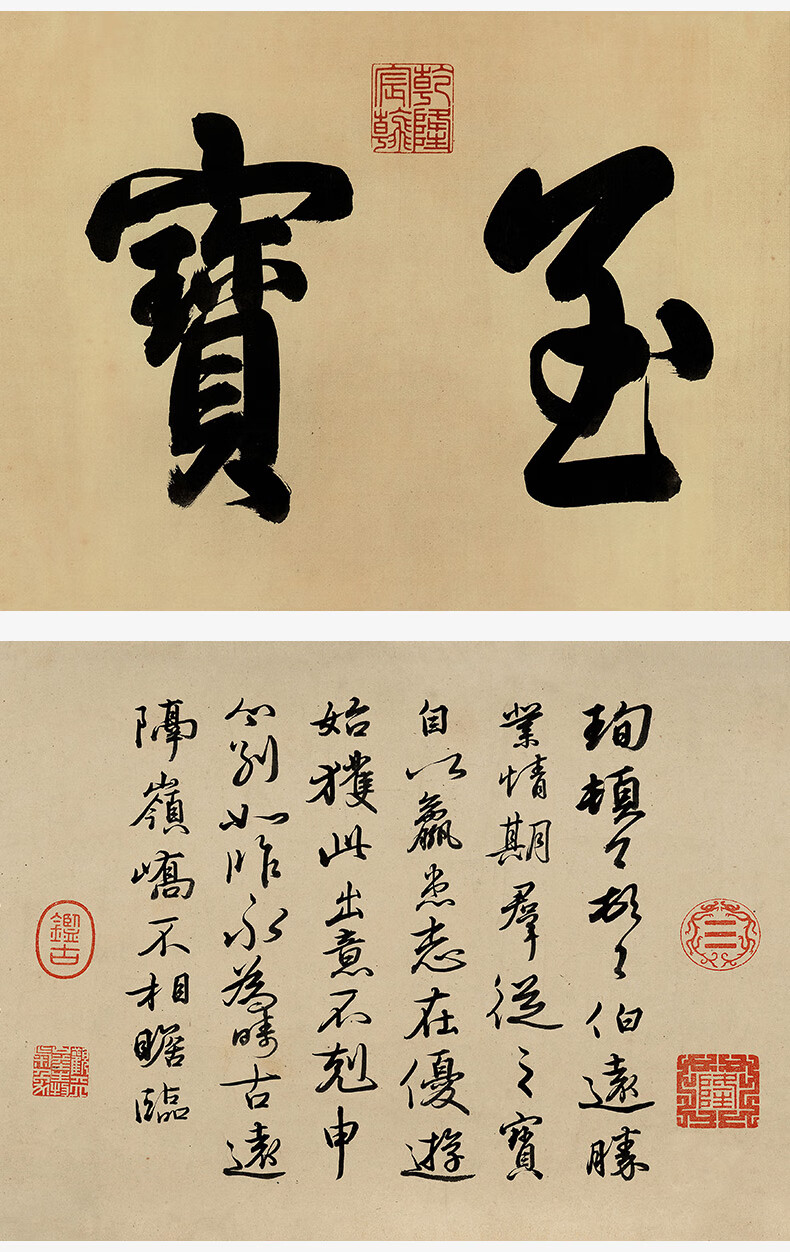 乾隆宸翰
至寶
珣頓〻首〻伯遠勝
業情期羣從之寶
自以羸患志在優遊
始獲此出意不剋申
分別如昨永為疇古遠
隔嶺嶠不相瞻臨
鑑古